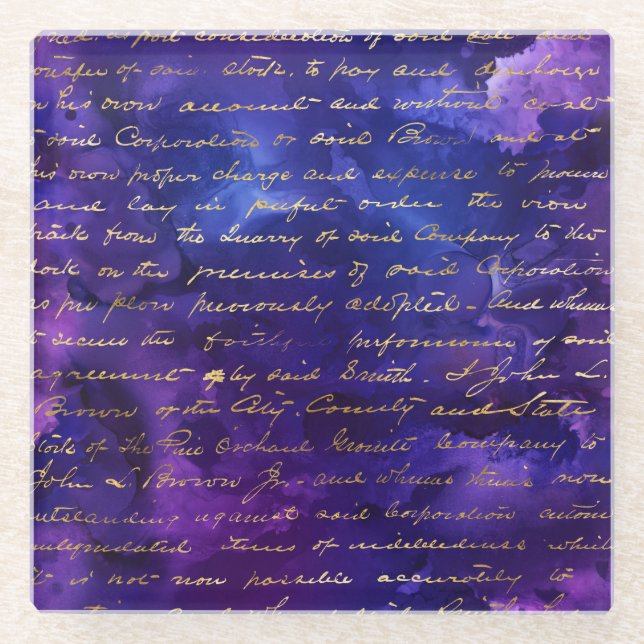 as part consideration of said sale and
transfer of said stock, to pay and discharge
in his own account and without cost
to said Corporation or said Brown and at
his own proper charge and expense to move
and lay in perfect order the iron
track from the Quarry of said Company to the
dock on the premises of said Corporation
as per plan previously adopted - And whereas
to secure the faithful performance of said
agreement by said Smith. I John L.
Brown of the City, County and State
Stock of The Pine Orchard Granite Company to
John L. Brown Jr. - and whereas there is now
outstanding against said Corporation certain
unliquidated items of indebtedness which
it is not now possible accurately to
said